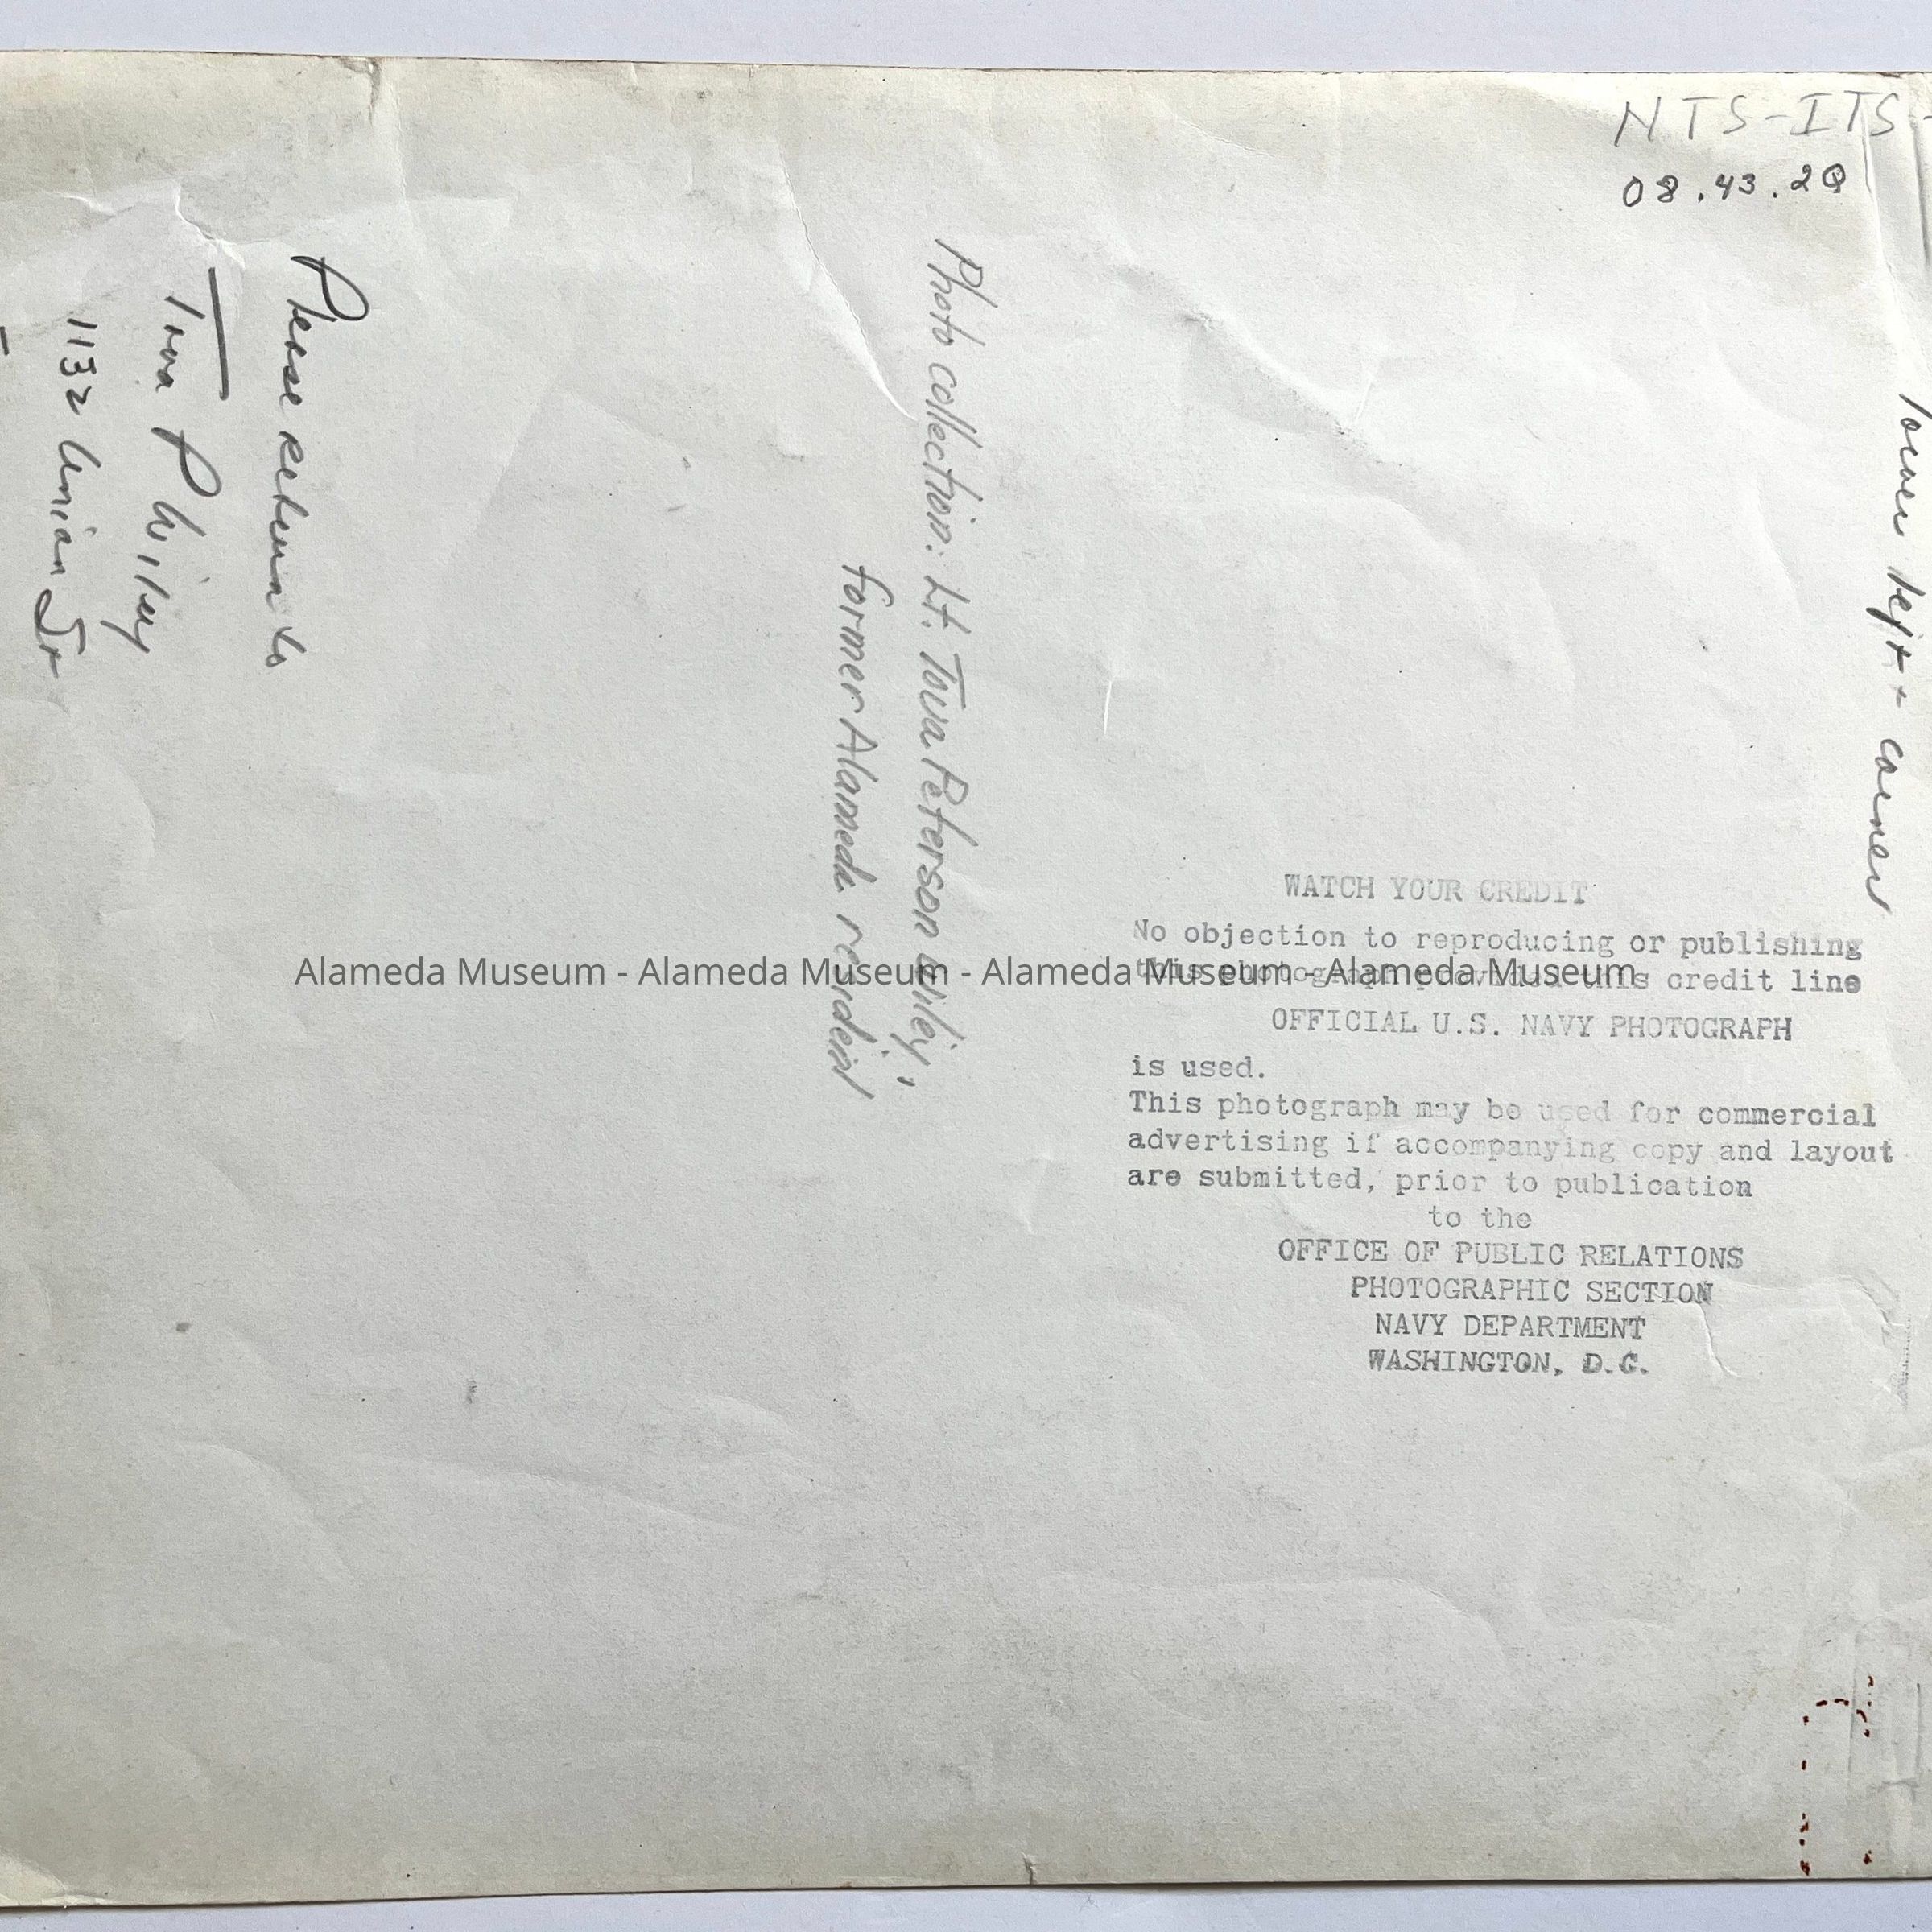 NTS-ITS-
08.43.20
lower left corner
Photo collection: Lt. Tova Peterson Wiley,
former Alameda resident
Please return to
Tova P Wiley
1132 Union St
WATCH YOUR CREDIT
No objection to reproducing or publishing
this photograph provided this credit line
OFFICIAL U.S. NAVY PHOTOGRAPH
is used.
This photograph may be used for commercial
advertising if accompanying copy and layout
are submitted, prior to publication
to the
OFFICE OF PUBLIC RELATIONS
PHOTOGRAPHIC SECTION
NAVY DEPARTMENT
WASHINGTON, D.C.
Alameda Museum - Alameda Museum - Alameda Museum - Alameda Museum